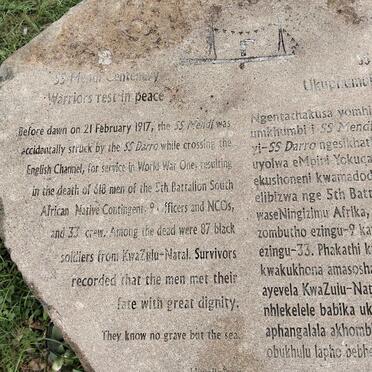 SS Mendi Centenary
Warriors rest in peace
Before dawn on 21 February 1917, the SS Mendi was
accidentally struck by the SS Darro while crossing the
English Channel, for service in World War One, resulting
in the death of 618 men of the 5th Battalion South
African Native Contingent, 9 officers and NCOs,
and 33 crew. Among the dead were 87 black
soldiers from KwaZulu-Natal. Survivors
recorded that the men met their
fate with great dignity.
They know no grave but the sea.
33
Ukuphumul
Ngentathakusa yomhl
umkhumbi i SS Mendi
yi-SS Darro ngesikhat
uyolwa eMpini Yokuqa
ekushoneni kwamadod
elibizwa nge 5th Batt
waseNingizimu Afrika,
zombutho ezingu-9 ka
ezingu-33. Phakathi k
kwakukhona amasosha
ayevela KwaZulu-Nat
nhlekelele babika uk
aphangalala akhomb
obukhulu lapho